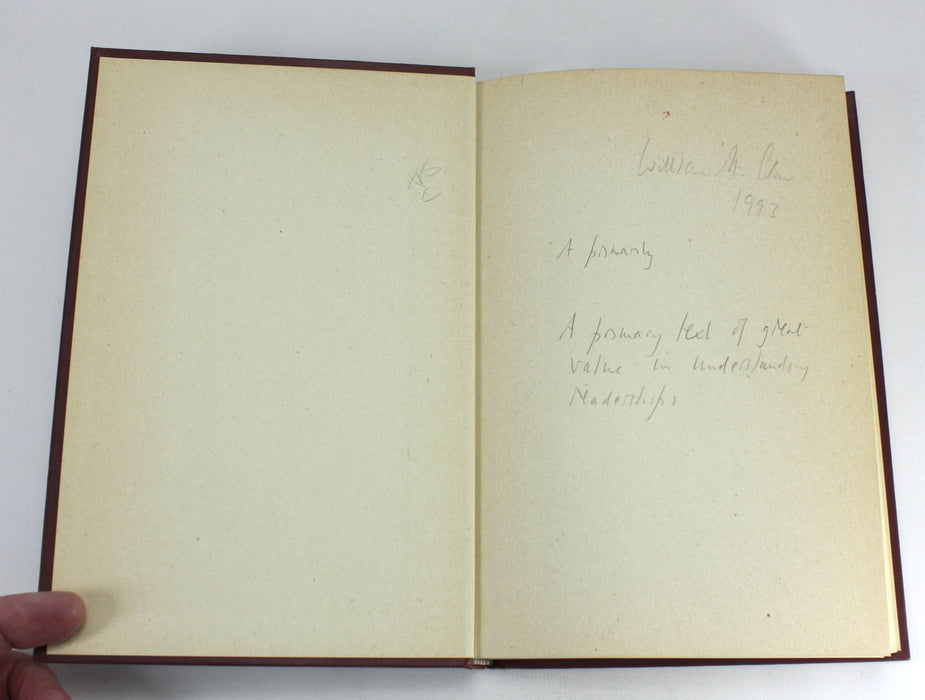 William
1993
A primarily
A primary text of great
value in understanding
readerships